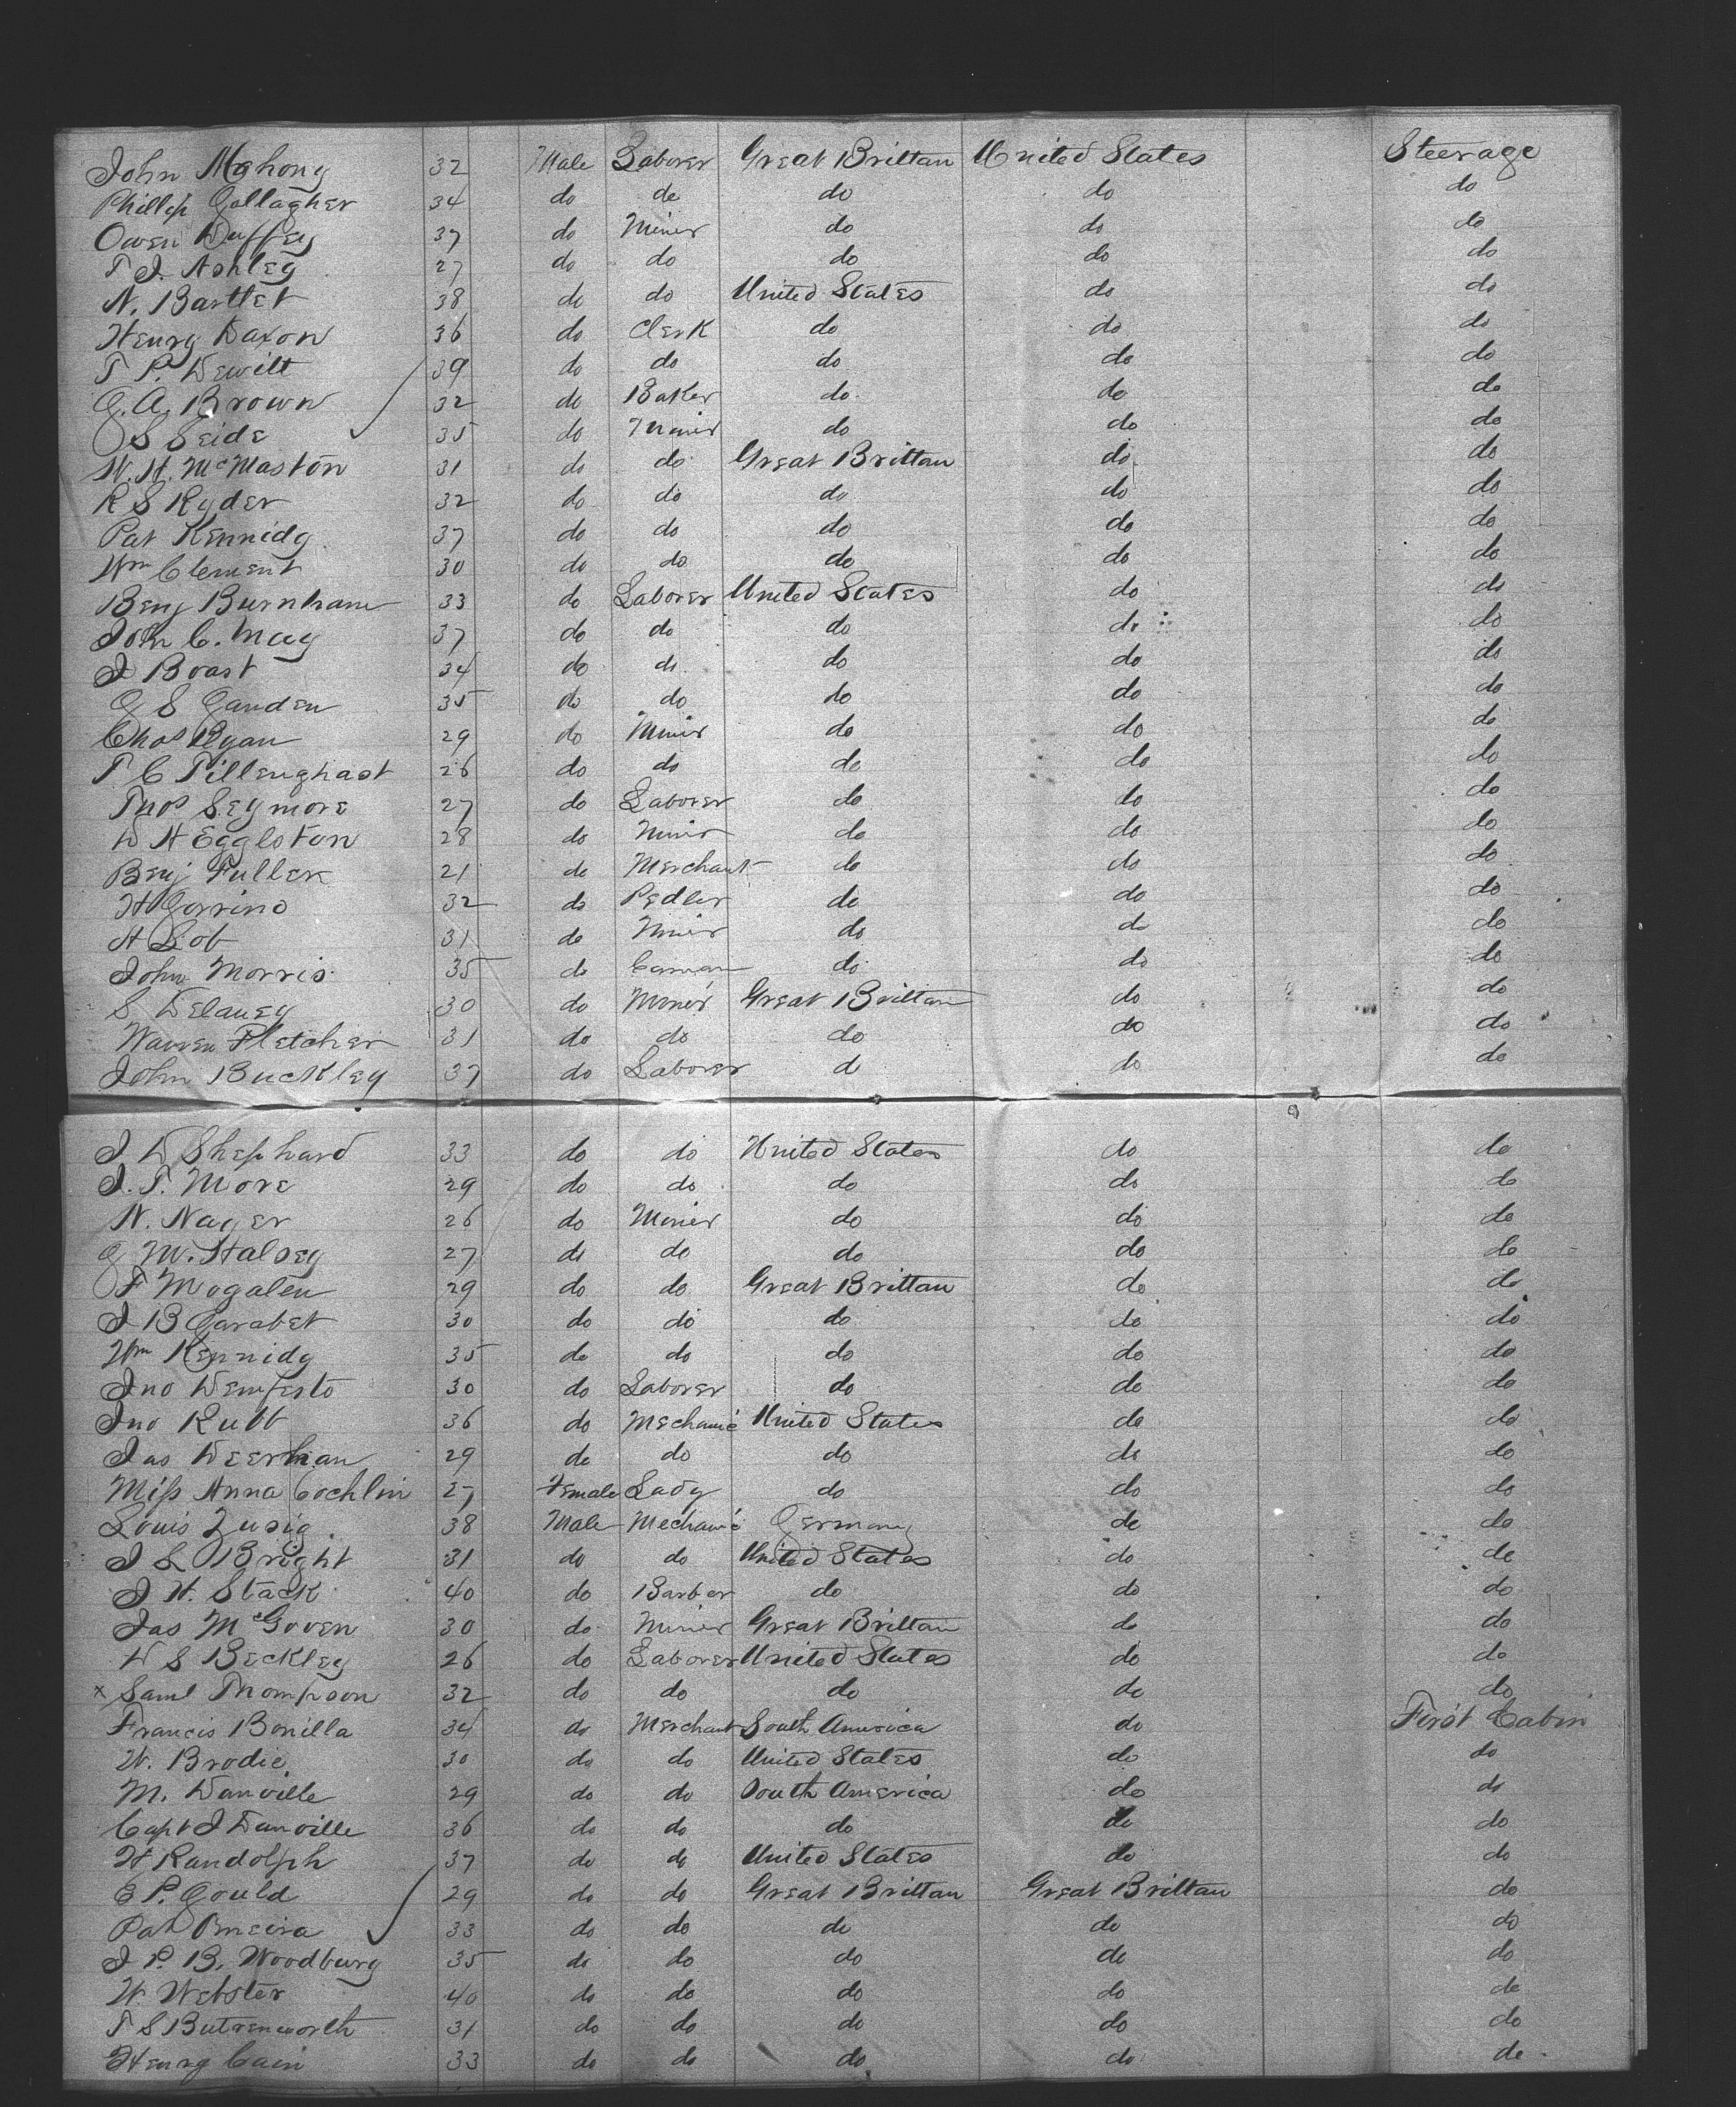 John Mahony 32 Male Laborer Great Brittan United States Steerage
Phillip Gallagher 34 do do do do do
Owen Duffey 37 do Miner do do do
T J. Ashley 27 do do do do do
N. Bartlet 38 do do United States do do
Henry Daxon 36 do Clerk do do do
T P. Dewitt 39 do do do do do
G. A. Brown 32 do Baker do do do
J S Seide 35 do Miner do do do
W. H. McMaston 31 do do Great Brittan do do
R S Ryder 32 do do do do do
Pat Kennidy 37 do do do do do
Wm Clement 30 do do do do do
Benj Burnham 33 do Laborer United States do do
John C. May 37 do do do do do
J Boast 34 do do do do do
G S Gauden 35 do do do do do
Chas Ryan 29 do Miner do do do
T C Tillenghast 26 do do do do do
Thos Seymore 27 do Laborer do do do
D H Eggleston 28 do Miner do do do
Benj Fuller 21 do Merchant do do do
H Gorrino 32 do Pedler do do do
A Lob 31 do Miner do do do
John Morris 35 do Carman do do do
S Delaney 30 do Miner Great Brittan do do
Warren Fletcher 31 do do do do do
John Buckley 37 do Laborer d do do
J D Shephard 33 do do United States do do
J. T. More 29 do do do do do
N. Nager 26 do Miner do do do
G M. Halsey 27 do do do do do
F Mogalen 29 do do Great Brittan do do
J B Garabet 30 do do do do do
Wm Kennidy 35 do do do do do
Jno Dempsto 30 do Laborer do do do
Jno Rubb 36 do Mechanic United States do do
Jas Deerhan 29 do do do do do
Miss Anna Cochlin 27 Female Lady do do do
Louis Zusig 38 Male Mechanic Germany do do
J L Bright 31 do do United States do do
J H. Stack 40 do Barber do do do
Jas McGoven 30 do Miner Great Brittan do do
D S Beckley 26 do Laborer United States do do
x Saml Thompson 32 do do do do do
Francis Bonilla 34 do Merchant South America do First Cabin
W. Brodie 30 do do United States do do
M. Danville 29 do do South America do do
Capt J Danville 36 do do do do do
H Randolph 37 do do United States do do
E P. Gould 29 do do Great Brittan Great Brittan do
Pat 33 do do do do do
J P. B. Woodbury 35 do do do do do
W. Webster 40 do do do do do
T S Butrenworth 31 do do do do do
Henry Cain 33 do do do do do